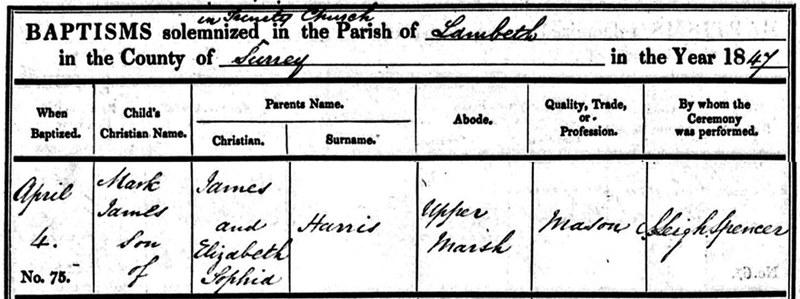 in Trinity Church
BAPTISMS solemnized in the Parish of Lambeth
in the County of Surrey in the Year 1847
When Baptized.
Child's Christian Name.
Parents Name.
Christian.
Surname.
Abode.
Quality, Trade, or Profession.
By whom the Ceremony was performed.
April
4.
No. 75.
Mark
James
son
of
James
and
Elizabeth
Sophia
Harris
Upper
Marsh
Mason
Leigh Spencer